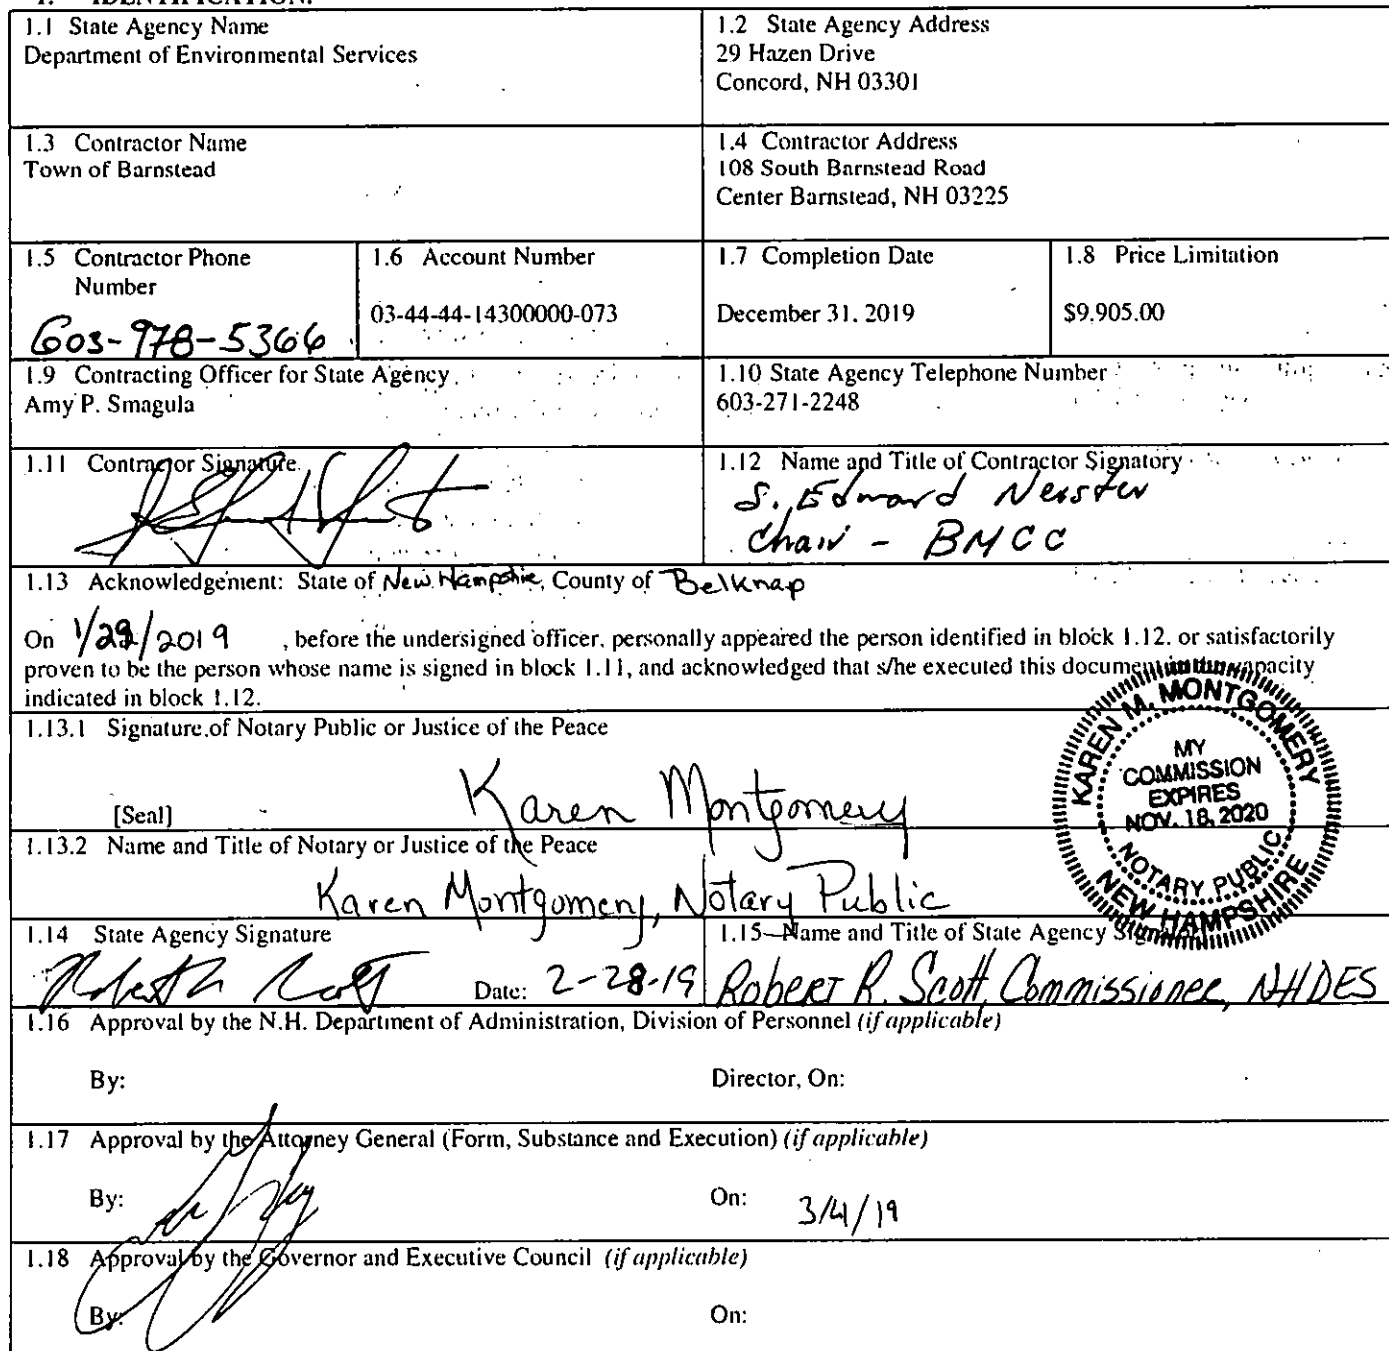 1. IDENTIFICATION.
1.1 State Agency Name
Department of Environmental Services
1.2 State Agency Address
29 Hazen Drive
Concord, NH 03301
1.3 Contractor Name
Town of Barnstead
1.4 Contractor Address
108 South Barnstead Road
Center Barnstead, NH 03225
1.5 Contractor Phone
Number
603-978-5366
1.6 Account Number
03-44-44-14300000-073
1.7 Completion Date
December 31, 2019
1.8 Price Limitation
$9,905.00
1.9 Contracting Officer for State Agency
Amy P. Smagula
1.10 State Agency Telephone Number
603-271-2248
1.11 Contractor Signature
1.12 Name and Title of Contractor Signatory
S. Edward Neister
Chair - BMCC
1.13 Acknowledgement: State of New Hampshire, County of Belknap
On 1/29/2019 , before the undersigned officer, personally appeared the person identified in block 1.12. or satisfactorily
proven to be the person whose name is signed in block 1.11, and acknowledged that s/he executed this document in the capacity
indicated in block 1.12.
1.13.1 Signature of Notary Public or Justice of the Peace
Karen Montgomery
[Seal]
KAREN M. MONTGOMERY
MY
COMMISSION
EXPIRES
NOV. 18, 2020
NOTARY PUBLIC
NEW HAMPSHIRE
1.13.2 Name and Title of Notary or Justice of the Peace
Karen Montgomery, Notary Public
1.14 State Agency Signature
Date: 2-28-19
1.15 Name and Title of State Agency Signatory
Robert R. Scott, Commissioner, NHDES
1.16 Approval by the N.H. Department of Administration, Division of Personnel (if applicable)
By: Director, On:
1.17 Approval by the Attorney General (Form, Substance and Execution) (if applicable)
By: On: 3/4/19
1.18 Approval by the Governor and Executive Council (if applicable)
By: On: